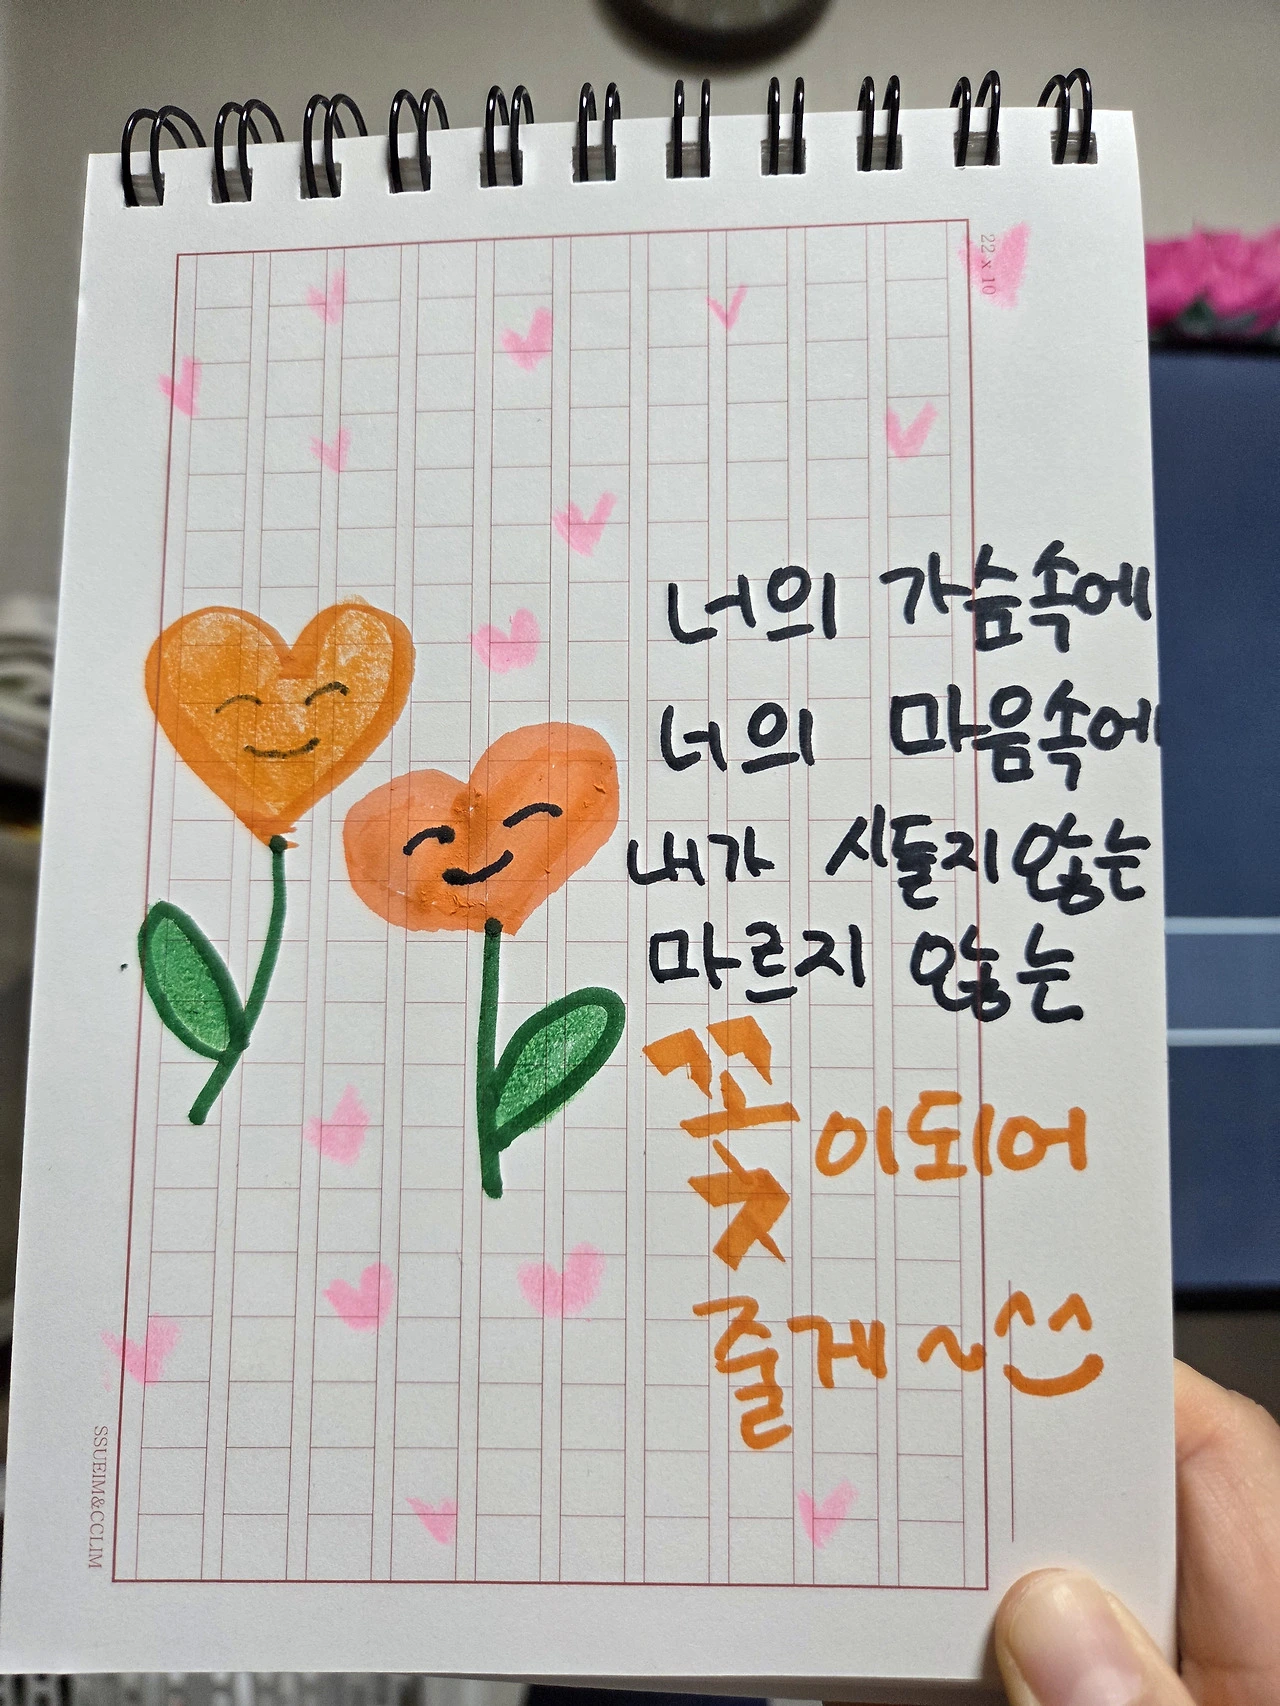 22 x 10
너의 가슴속에
너의 마음속에
내가 시들지않는
마르지 않는
꽃이되어
줄게~
SSUEIM&CCLIM